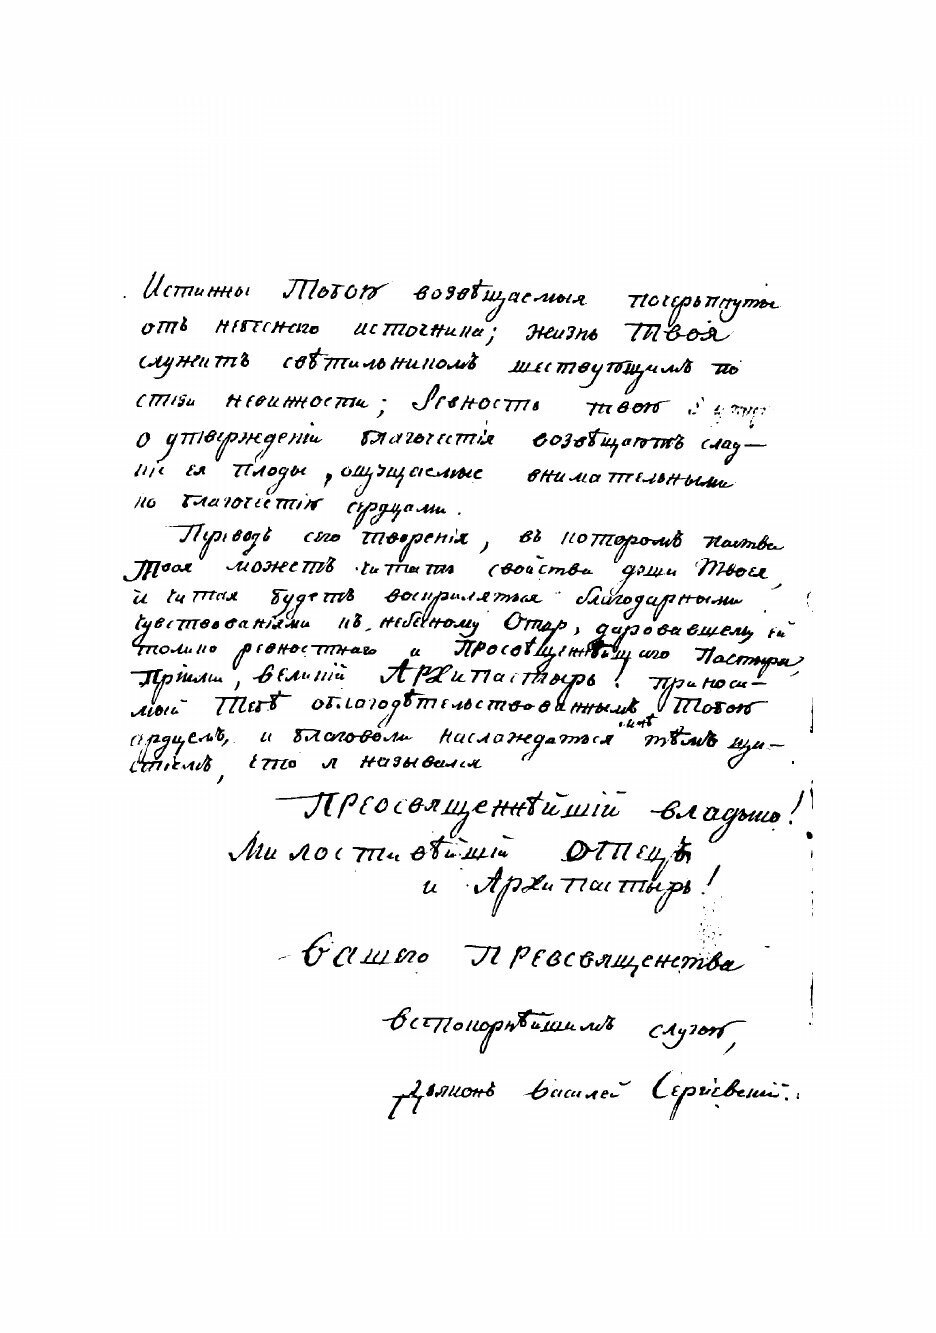 Истинны Тобою возвѣщаемыя почерьпнуты
отъ небеснаго источника; жизнь Твоя
служитъ свѣтильникомъ шествующимъ по
стези невинности; Ревность твою
о утвержденіи благочестія возвѣщаютъ слад-
кіе ея плоды, ощущаемые внимательными
ко благочестію сердцами.
Переводъ сего творенія, въ которомъ паства
Твоя можетъ читать свойства души Твоея,
и читая будетъ восприляться благодарными
чувствованіями къ небесному Отцу, даровавшему ей
толико ревностнаго и Просвѣщеннѣйшаго Пастыря,
Пріими, великій Архипастырь! приноси-
мый Тебѣ облагодѣтельствованнымъ Тобою
сердцемъ, и благоволи наслаждаться тѣмъ ща-
стіемъ, что я назывался
Преосвященнѣйшій владыко!
Милостивѣйшій отецъ
и Архипастырь!
Вашего Преосвященства
всепокорнѣйшимъ слугою,
Дьяконъ Василей Сергіевскій.